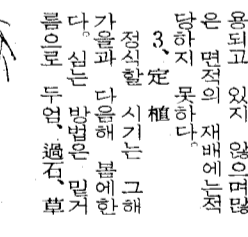 용되고 있지 않으며많
은 면적의 재배에는적
당하지 못하다.
3、定 植
정식할 시기는 그해
가을과 다음해 봄에한
다. 심는 방법은 밑거
름으로 두엄、過石、草